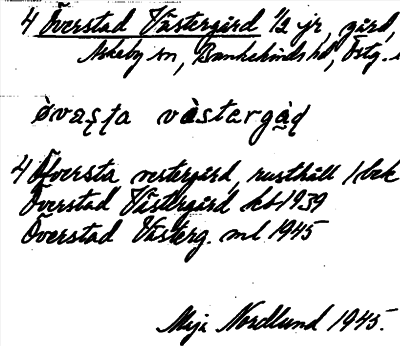 4 Överstad Västergård 1/2 jr, gård,
Askeby sn, Bankekinds hd, Östg.
øvaṣṭa västergạ̊ḍ
4 Öfversta vestergård, rusthåll 1/bek
Överstad Västergård kb 1939
Överstad Västerg. ml 1945
Maja Nordlund 1945.